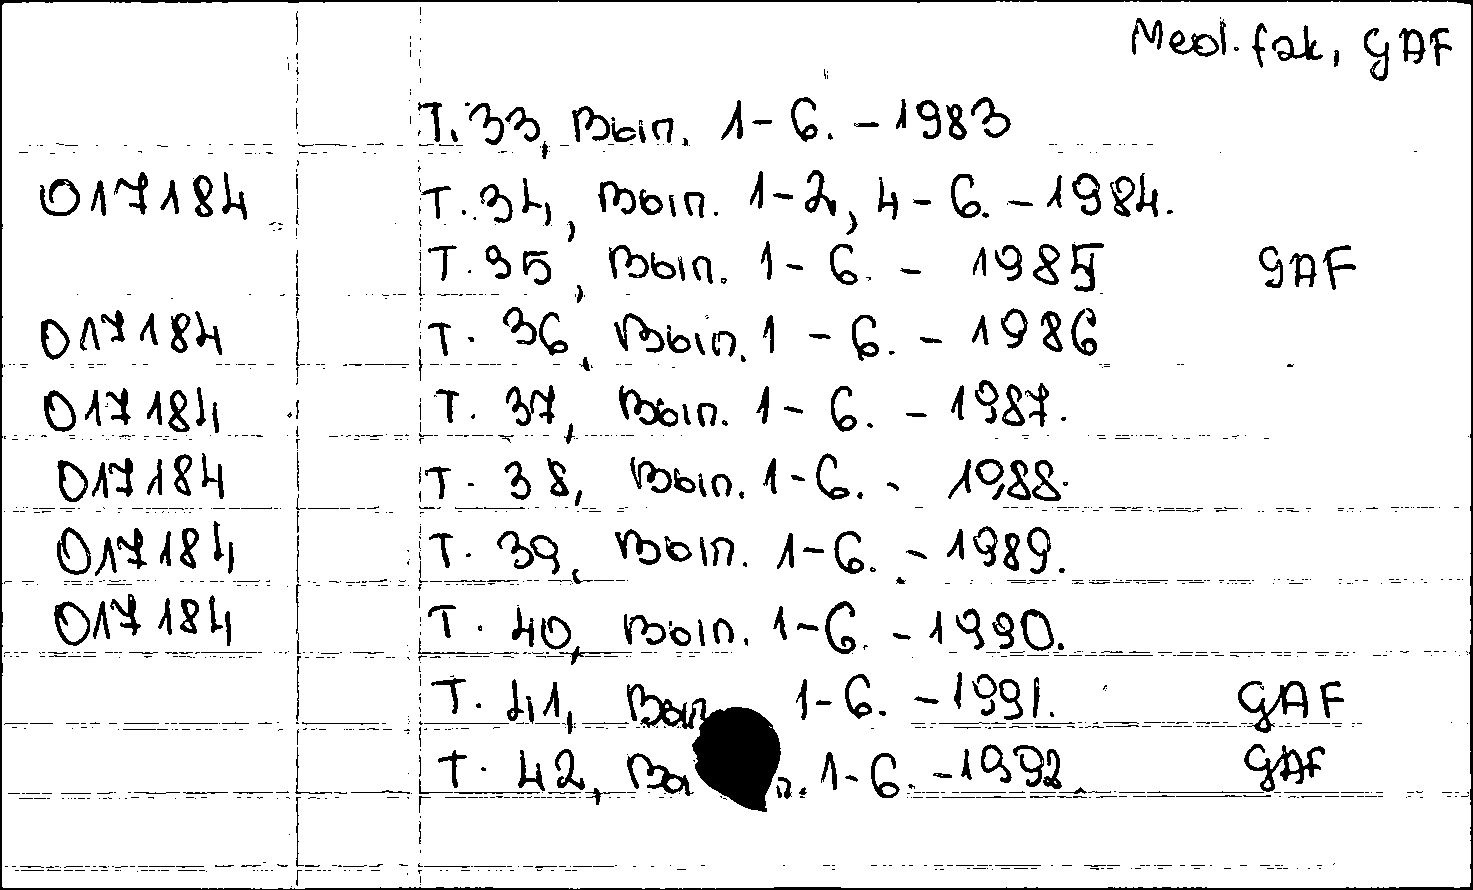 Med. fak, GAF
Т. 33, Вып. 1-6. - 1983
017184 Т. 34, Вып. 1-2, 4-6. - 1984.
Т. 35, Вып. 1-6. - 1985 GAF
017184 Т. 36, Вып. 1-6. - 1986
017184 Т. 37, Вып. 1-6. - 1987.
017184 Т. 38, Вып. 1-6. - 1988.
017184 Т. 39, Вып. 1-6. - 1989.
017184 Т. 40, Вып. 1-6. - 1990.
Т. 41, Вып 1-6. - 1991. GAF
Т. 42, Вып. 1-6. - 1992. GAF